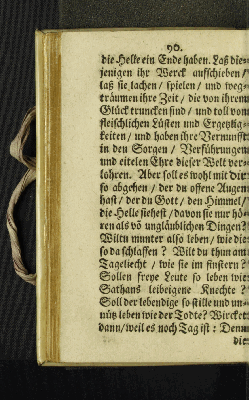 90.
die Helle ein Ende haben. Laß die-
jenigen ihr Werck aufschieben /
laß sie lachen / spielen / und weg-
träumen ihre Zeit / die von ihrem
Glück truncken sind / und toll von
fleischlichen Lüsten und Ergetzlig-
keiten / und haben ihre Vernunfft
in den Sorgen / Verführungen
und eitelen Ehre dieser Welt ver-
lohren. Aber soll es wohl mit dir
so abgehen / der du offene Augen
hast / der du Gott / den Himmel /
die Helle siehest / davon sie nur hö-
ren als vō unglaublichen Dingen?
Wiltu munter also leben / wie die
so da schlaffen? Wilt du thun am
Tageliecht / wie sie im finstern?
Sollen freye Leute so leben wie
Sathans leibeigene Knechte?
Soll der lebendige so stille und un-
nütz leben wie der Todte? Wircket
dann / weil es noch Tag ist: Denn
die